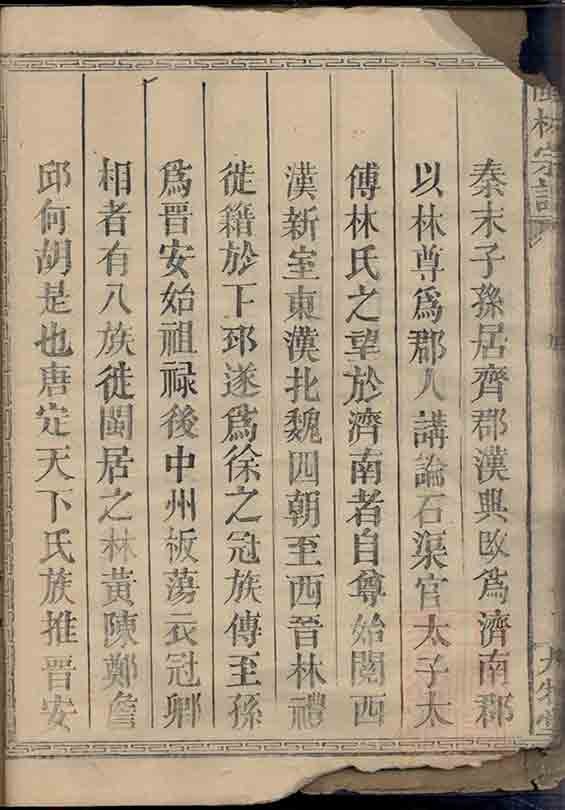 林宗譜
秦末子孫居齊郡漢興改爲濟南郡
以林尊爲郡人講論石渠官太子太
傅林氏之望於濟南者自尊始閱西
漢新室東漢北魏四朝至西晉林禮
徙籍於下邳遂爲徐之冠族傳至孫
爲晉安始祖祿後中州板蕩衣冠卿
相者有八族徙閩居之林黃陳鄭詹
邱何胡是也唐定天下氏族推晉安